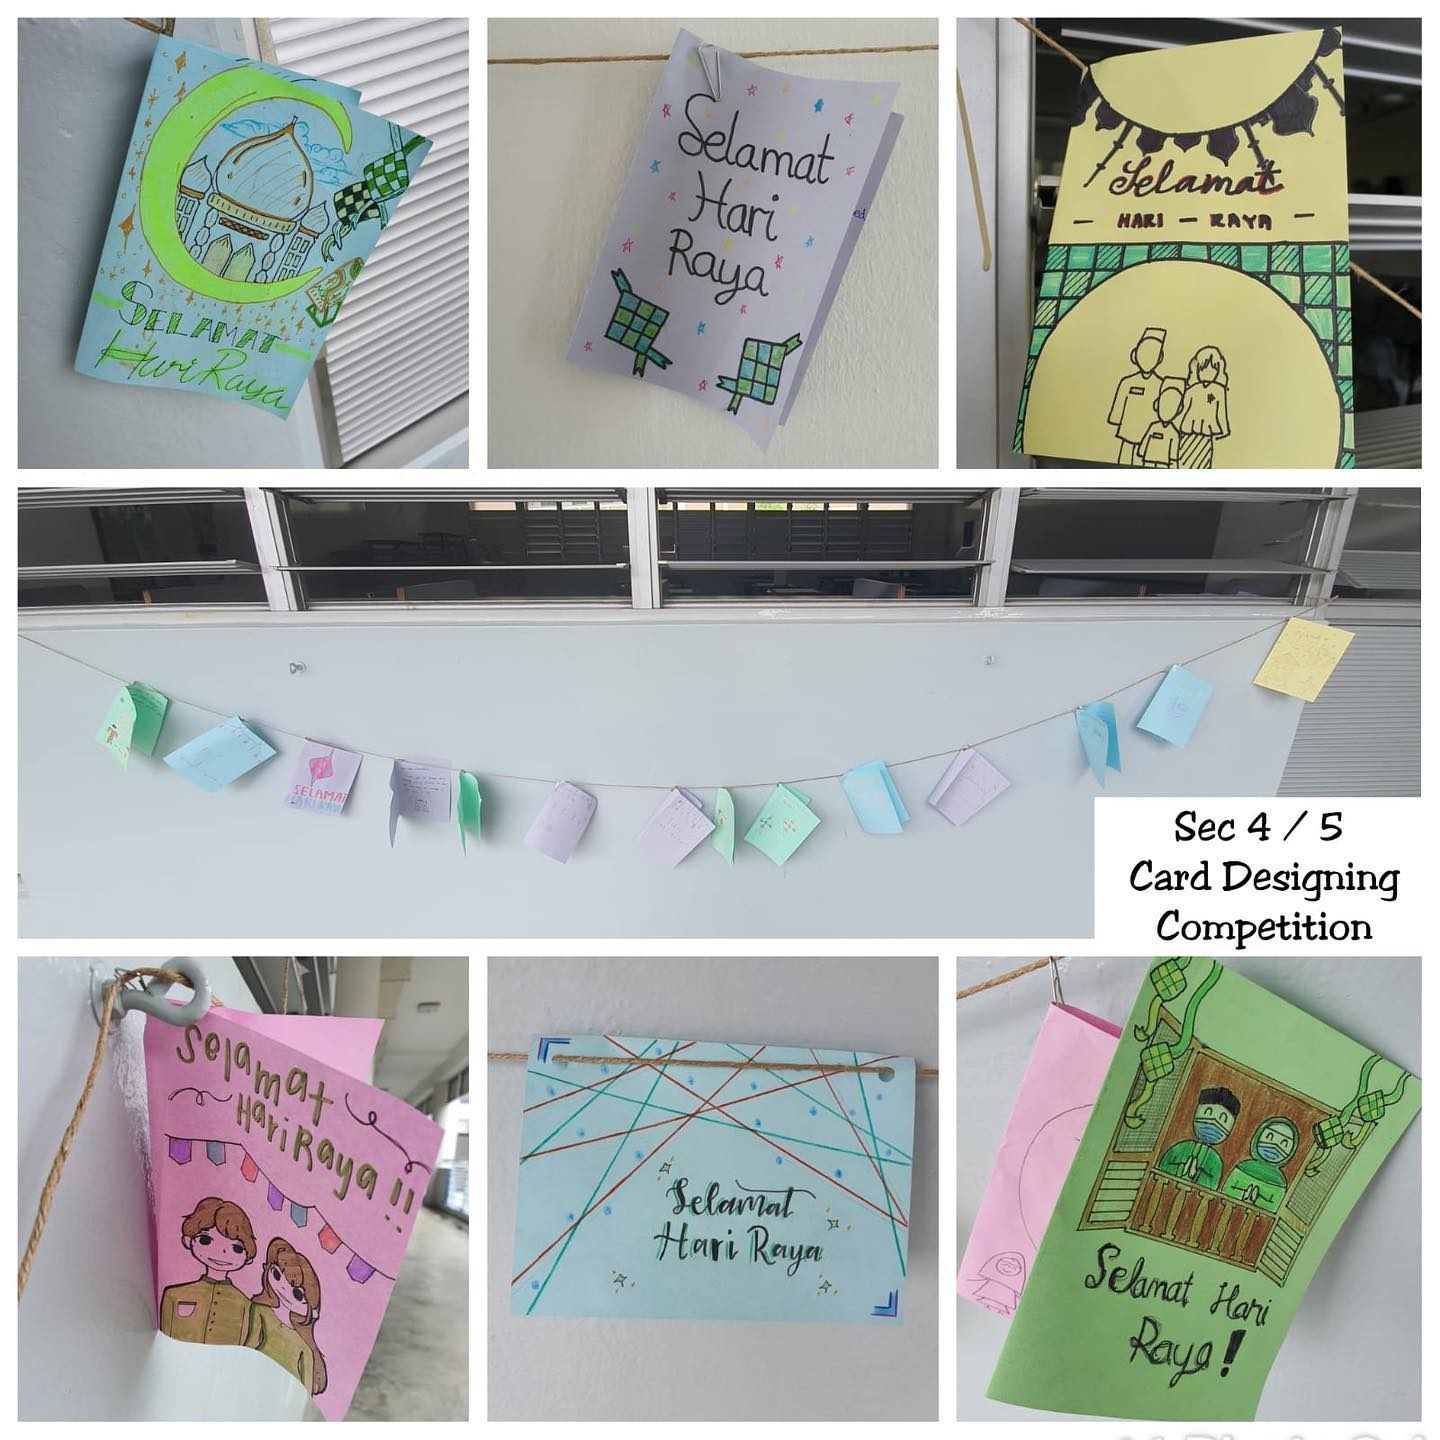 SELAMAT
Hari Raya
Selamat
Hari
Raya
ed
Selamat
- HARI - RAYA -
SELAMAT
HARI RAYA
Sec 4 / 5
Card Designing
Competition
Selamat
Hari Raya !!
Selamat
Hari Raya
Selamat Hari
Raya!